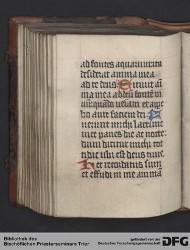 ad fontes aquarum ita
desiderat anima mea
ad te deus Sitiuit ani
ma mea ad deum fonte ui
uū quādo ueniam et appa
bo ante faciem dei
uerunt michi lacrime
mee panes die ac nocte
dum dicitur michi coti
die ubi est deus tuus
Hec recordatus sum
et effudi in me animā
Bibliothek des
Bischöflichen Priesterseminars Trier
gefördert von der
Deutschen Forschungsgemeinschaft